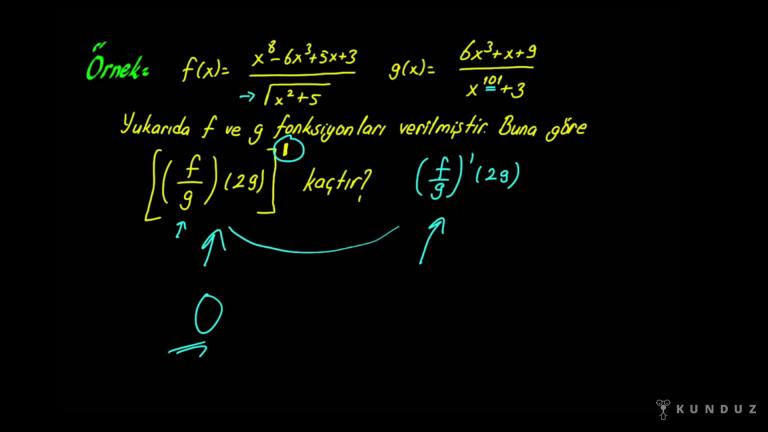 Örnek= f(x)= x⁸-6x³+5x+3 / → √x²+5 g(x)= 6x³+x+9 / x¹⁰¹+3
Yukarıda f ve g fonksiyonları verilmiştir. Buna göre
[(f/g)(29)]' kaçtır? (f/g)'(29)
0
KUNDUZ